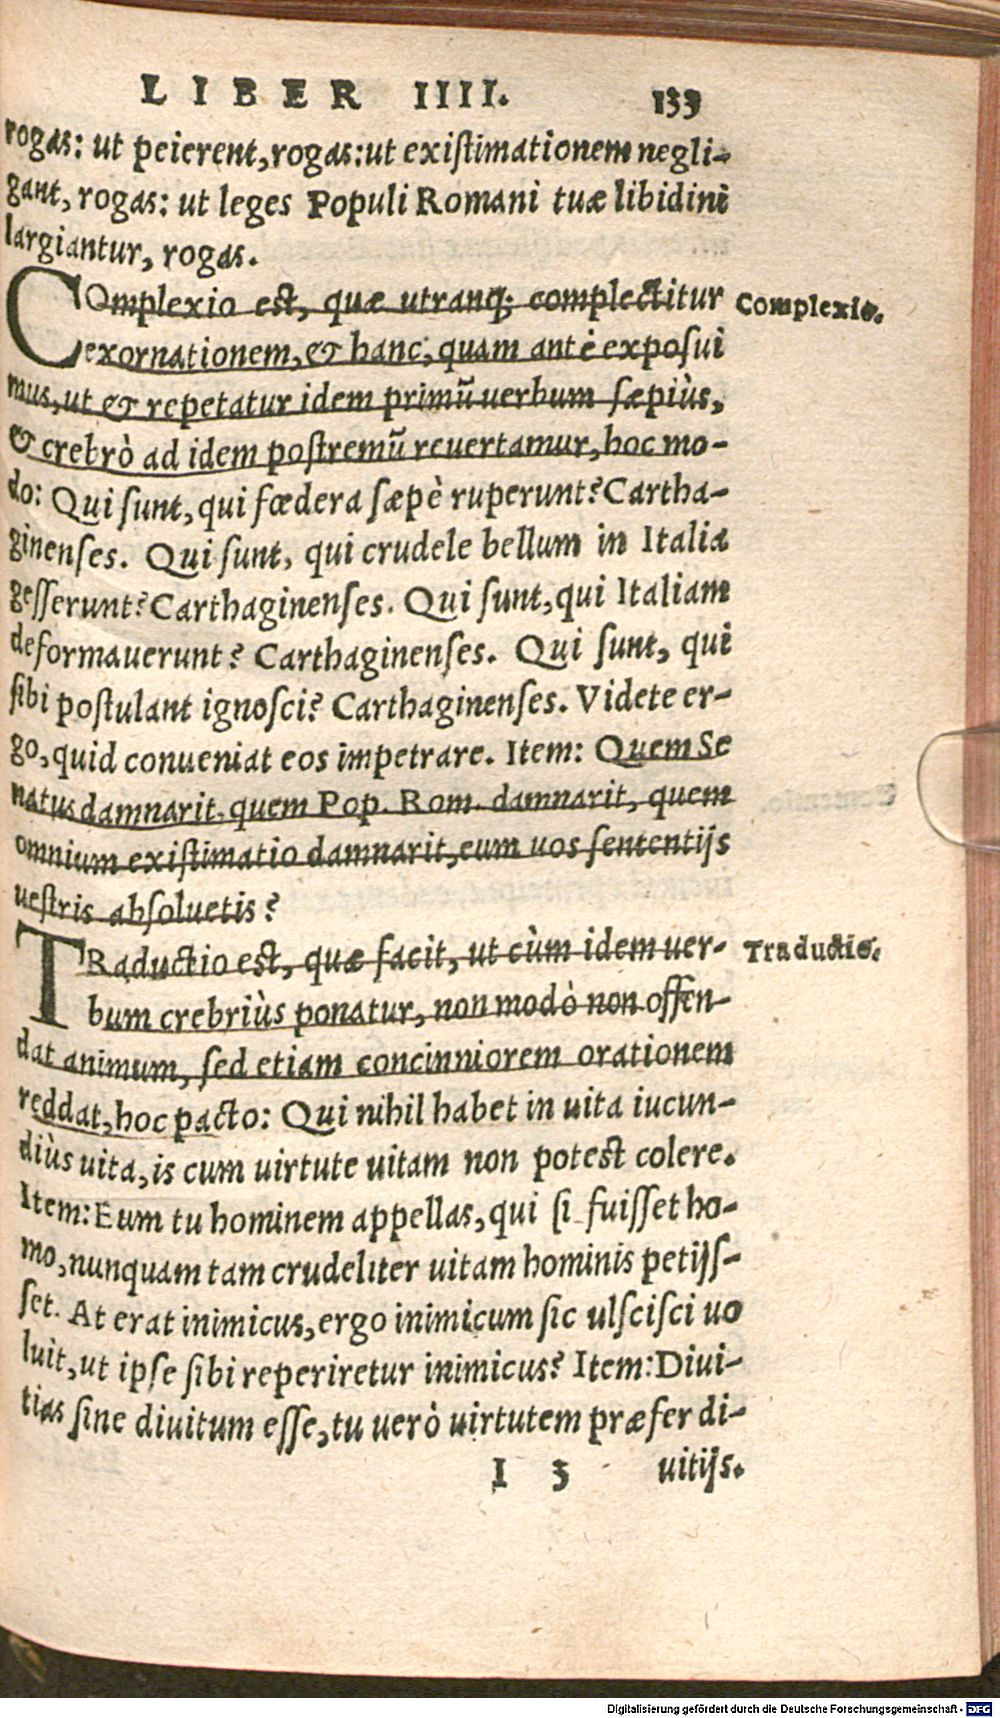 LIBER IIII. 133
rogas: ut peierent, rogas: ut existimationem negli-
gant, rogas: ut leges Populi Romani tuæ libidini
largiantur, rogas.
COmplexio est, quæ utranq; complectitur
Complexio.
exornationem, & hanc, quam antè exposui
mus, ut & repetatur idem primũ uerbum sæpiùs,
& crebrò ad idem postremũ reuertamur, hoc mo-
do: Qui sunt, qui fœdera sæpè ruperunt? Cartha-
ginenses. Qui sunt, qui crudele bellum in Italia
gesserunt? Carthaginenses. Qui sunt, qui Italiam
deformauerunt? Carthaginenses. Qui sunt, qui
sibi postulant ignosci? Carthaginenses. Videte er-
go, quid conueniat eos impetrare. Item: Quem Se
natus damnarit, quem Pop. Rom. damnarit, quem
omnium existimatio damnarit, eum uos sententijs
uestris absoluetis?
TRaductio est, quæ facit, ut cùm idem uer-
Traductio.
bum crebriùs ponatur, non modò non offen-
dat animum, sed etiam concinniorem orationem
reddat, hoc pacto: Qui nihil habet in uita iucun-
diùs uita, is cum uirtute uitam non potest colere.
Item: Eum tu hominem appellas, qui si fuisset ho-
mo, nunquam tam crudeliter uitam hominis petijs-
set. At erat inimicus, ergo inimicum sic ulscisci uo
luit, ut ipse sibi reperiretur inimicus? Item: Diui-
tias sine diuitum esse, tu uerò uirtutem præfer di-
I 3 uitijs.
Digitalisierung gefördert durch die Deutsche Forschungsgemeinschaft - DFG